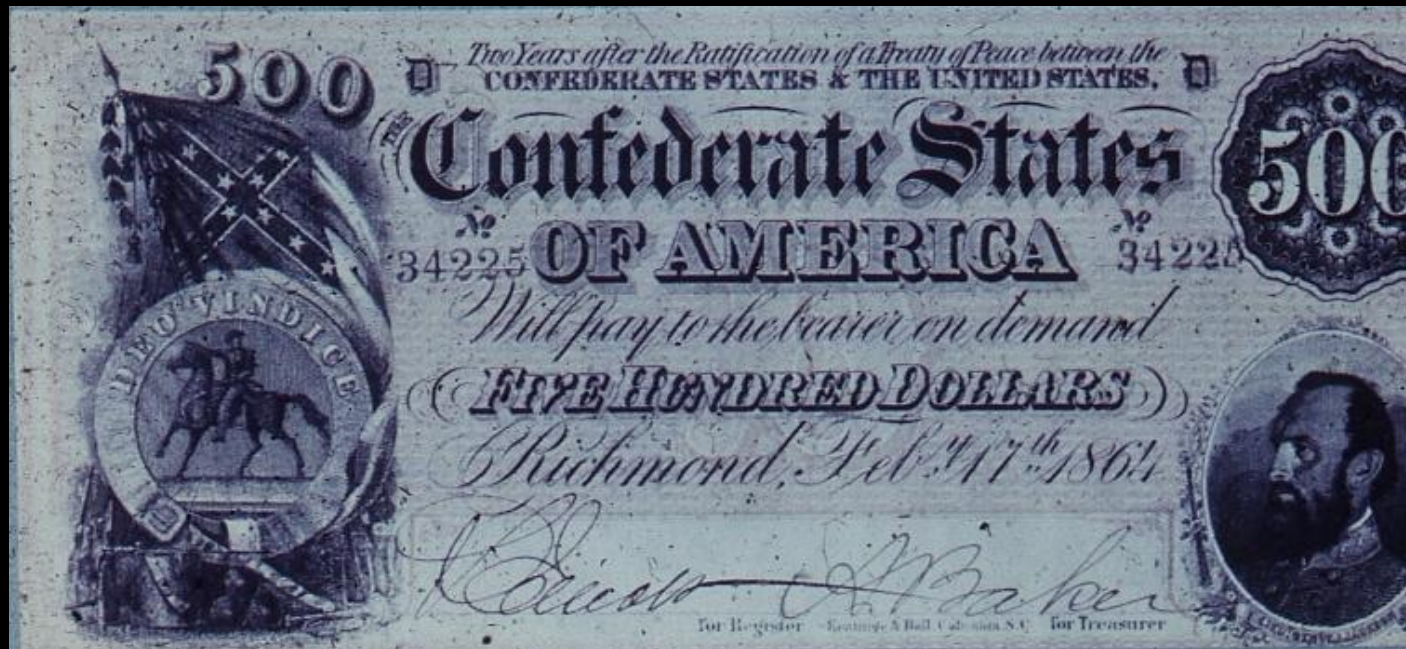 500
D Two Years after the Ratification of a Treaty of Peace between the D
CONFEDERATE STATES & THE UNITED STATES,
THE Confederate States
500
No No
34225 OF AMERICA 34225
DEO VINDICE
Will pay to the bearer on demand
FIVE HUNDRED DOLLARS
Richmond, Feby. 17th 1864
Baker
For Register Keatinge & Ball, Columbia, S.C. for Treasurer